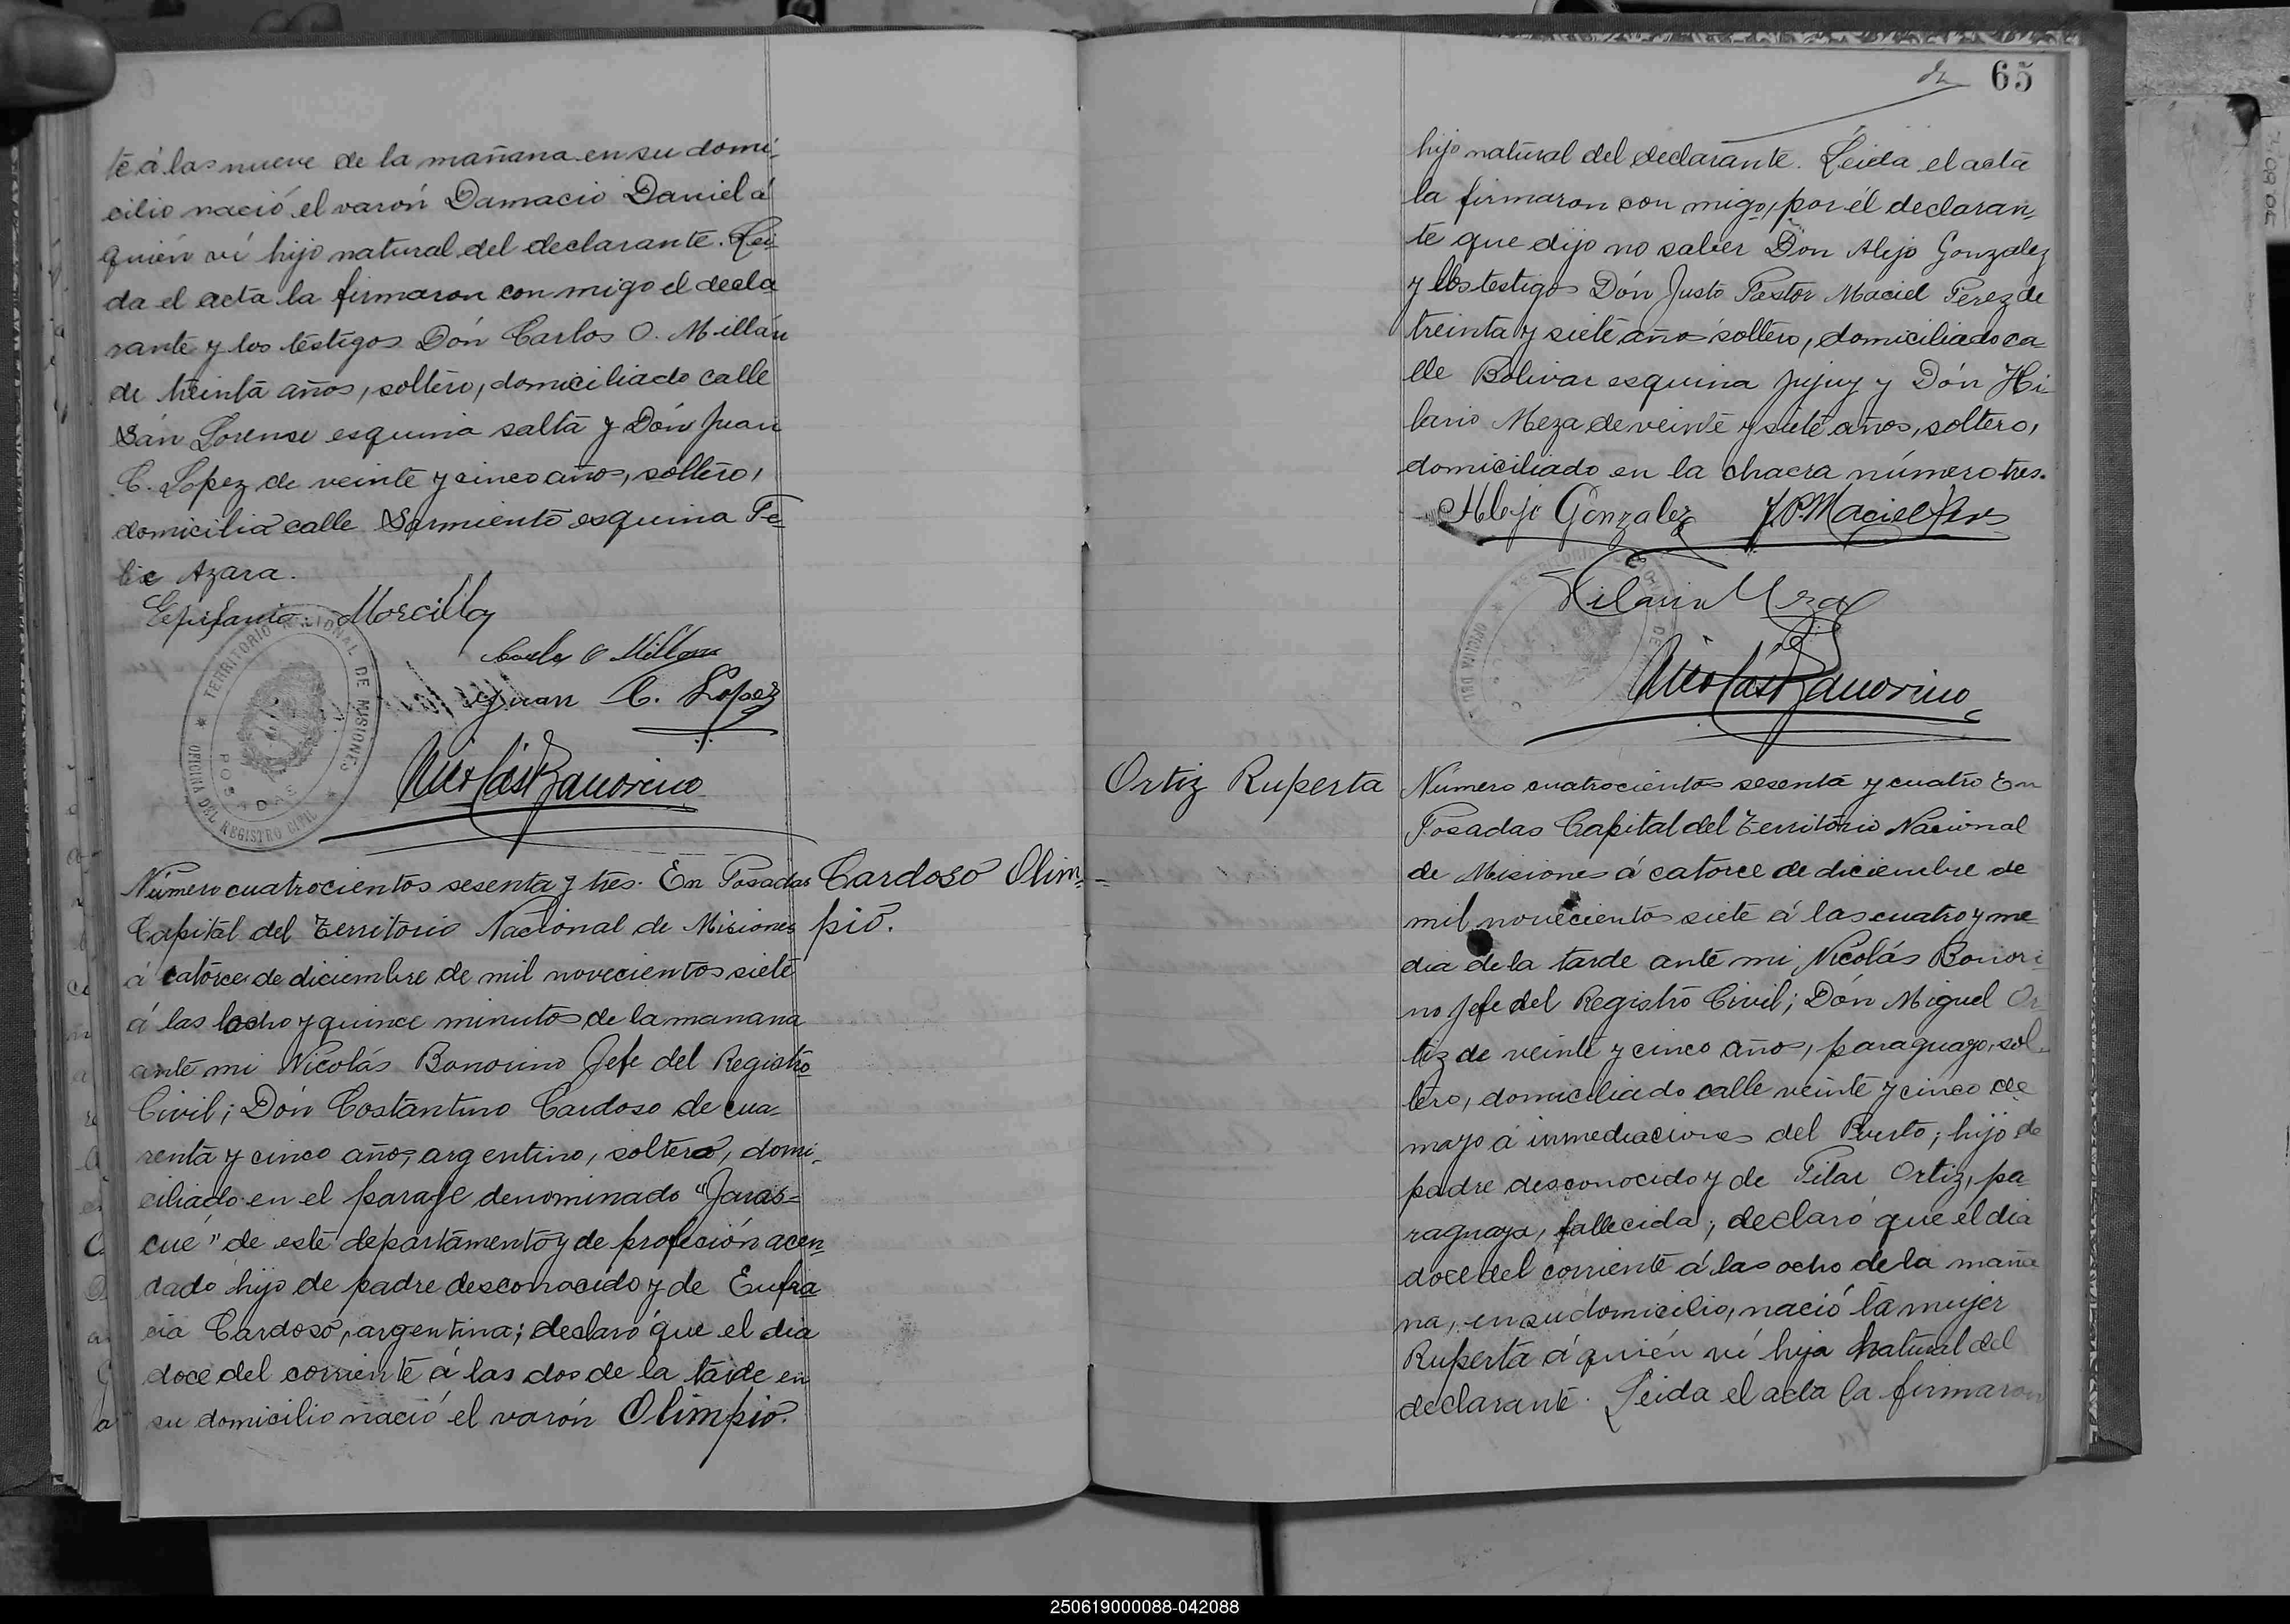 te á las nueve de la mañana en su domi-
cilio nació el varón Damacio Daniel á
quién ví hijo natural del declarante. Lei-
da el acta la firmaron con migo el decla
rante y los testigos Dón Carlos O. Millán
de treinta años, soltero, domiciliado calle
San Lorenso esquina salta y Dón Juan
C. Lopez de veinte y cinco años, soltero,
domicilia calle Sarmiento esquina Fe-
lix Azara.
Epifanio Morcillo
Carlos O Millan
Juan C. Lopez
TERRITORIO NACIONAL DE MISIONES
POSADAS
OFICINA DEL REGISTRO CIVIL
Nicolás Bonorino
Número cuatrocientos sesenta y tres. En Posadas
Capital del Territorio Nacional de Misiones
á catorce de diciembre de mil novecientos siete
á las ocho y quince minutos de la manana
ante mi Nicolás Bonorino Jefe del Registro
Civil; Dón Costantino Cardoso de cua-
renta y cinco años, argentino, soltero, domi-
ciliado en el paraje denominado "Jaras=
cué" de este departamento y de profeción acen-
dado hijo de padre desconocido y de Eufra
cia Cardoso, argentina; declaró que el dia
doce del corriente á las dos de la tarde en
su domicilio nació el varón Olimpio.
Cardoso Olim-
pio.
65
hijo natural del declarante. Leida el acta
la firmaron con migo, por él declaran-
te que dijo no saber Dón Alejo Gonzalez
y los testigos Dón Justo Pastor Maciel Perez de
treinta y siete años soltero, domiciliado ca-
lle Bolivar esquina Jujuy y Dón Hi-
lario Meza de veinte y siete años, soltero,
domiciliado en la chacra número tres.
Alejo Gonzalez J.P. Maciel Perez
Hilario Meza
Nicolás Bonorino
Ortiz Ruperta
Número cuatrocientos sesenta y cuatro En
Posadas Capital del Territorio Nacional
de Misiones á catorce de diciembre de
mil novecientos siete á las cuatro y me
dia de la tarde ante mi Nicolás Bonori
no Jefe del Registro Civil; Dón Miguel Or
tiz de veinte y cinco años, paraguayo, sol-
tero, domiciliado calle veinte y cinco de
mayo á inmediaciones del Puerto; hijo de
padre desconocido y de Pilar Ortiz, pa
raguaya, fallecida; declaró que el dia
doce del corriente á las ocho de la maña
na, en su domicilio, nació la mujer
Ruperta á quién ví hija natural del
declarante. Leida el acta la firmaron
250619000088-042088